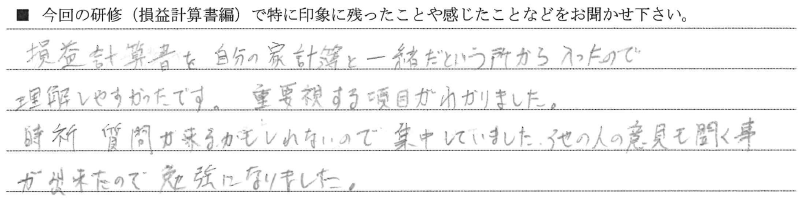 ■ 今回の研修（損益計算書編）で特に印象に残ったことや感じたことなどをお聞かせ下さい。
損益計算書を自分の家計簿と一緒だという所から入ったので
理解しやすかったです。重要視する項目がわかりました。
時折 質問が来るかもしれないので集中していました。他の人の意見も聞く事
が出来たので勉強になりました。